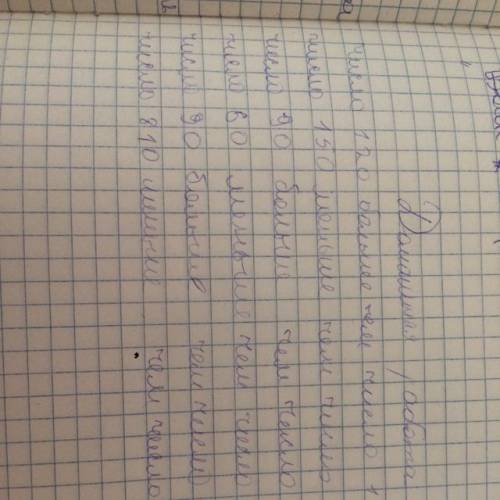 Домашняя работа
число 120 больнее чем число
число 150 менше чем число
число 90 больше чем число
число 60 меньше чем число
число 90 больше чем число
число 810 меньше чем число